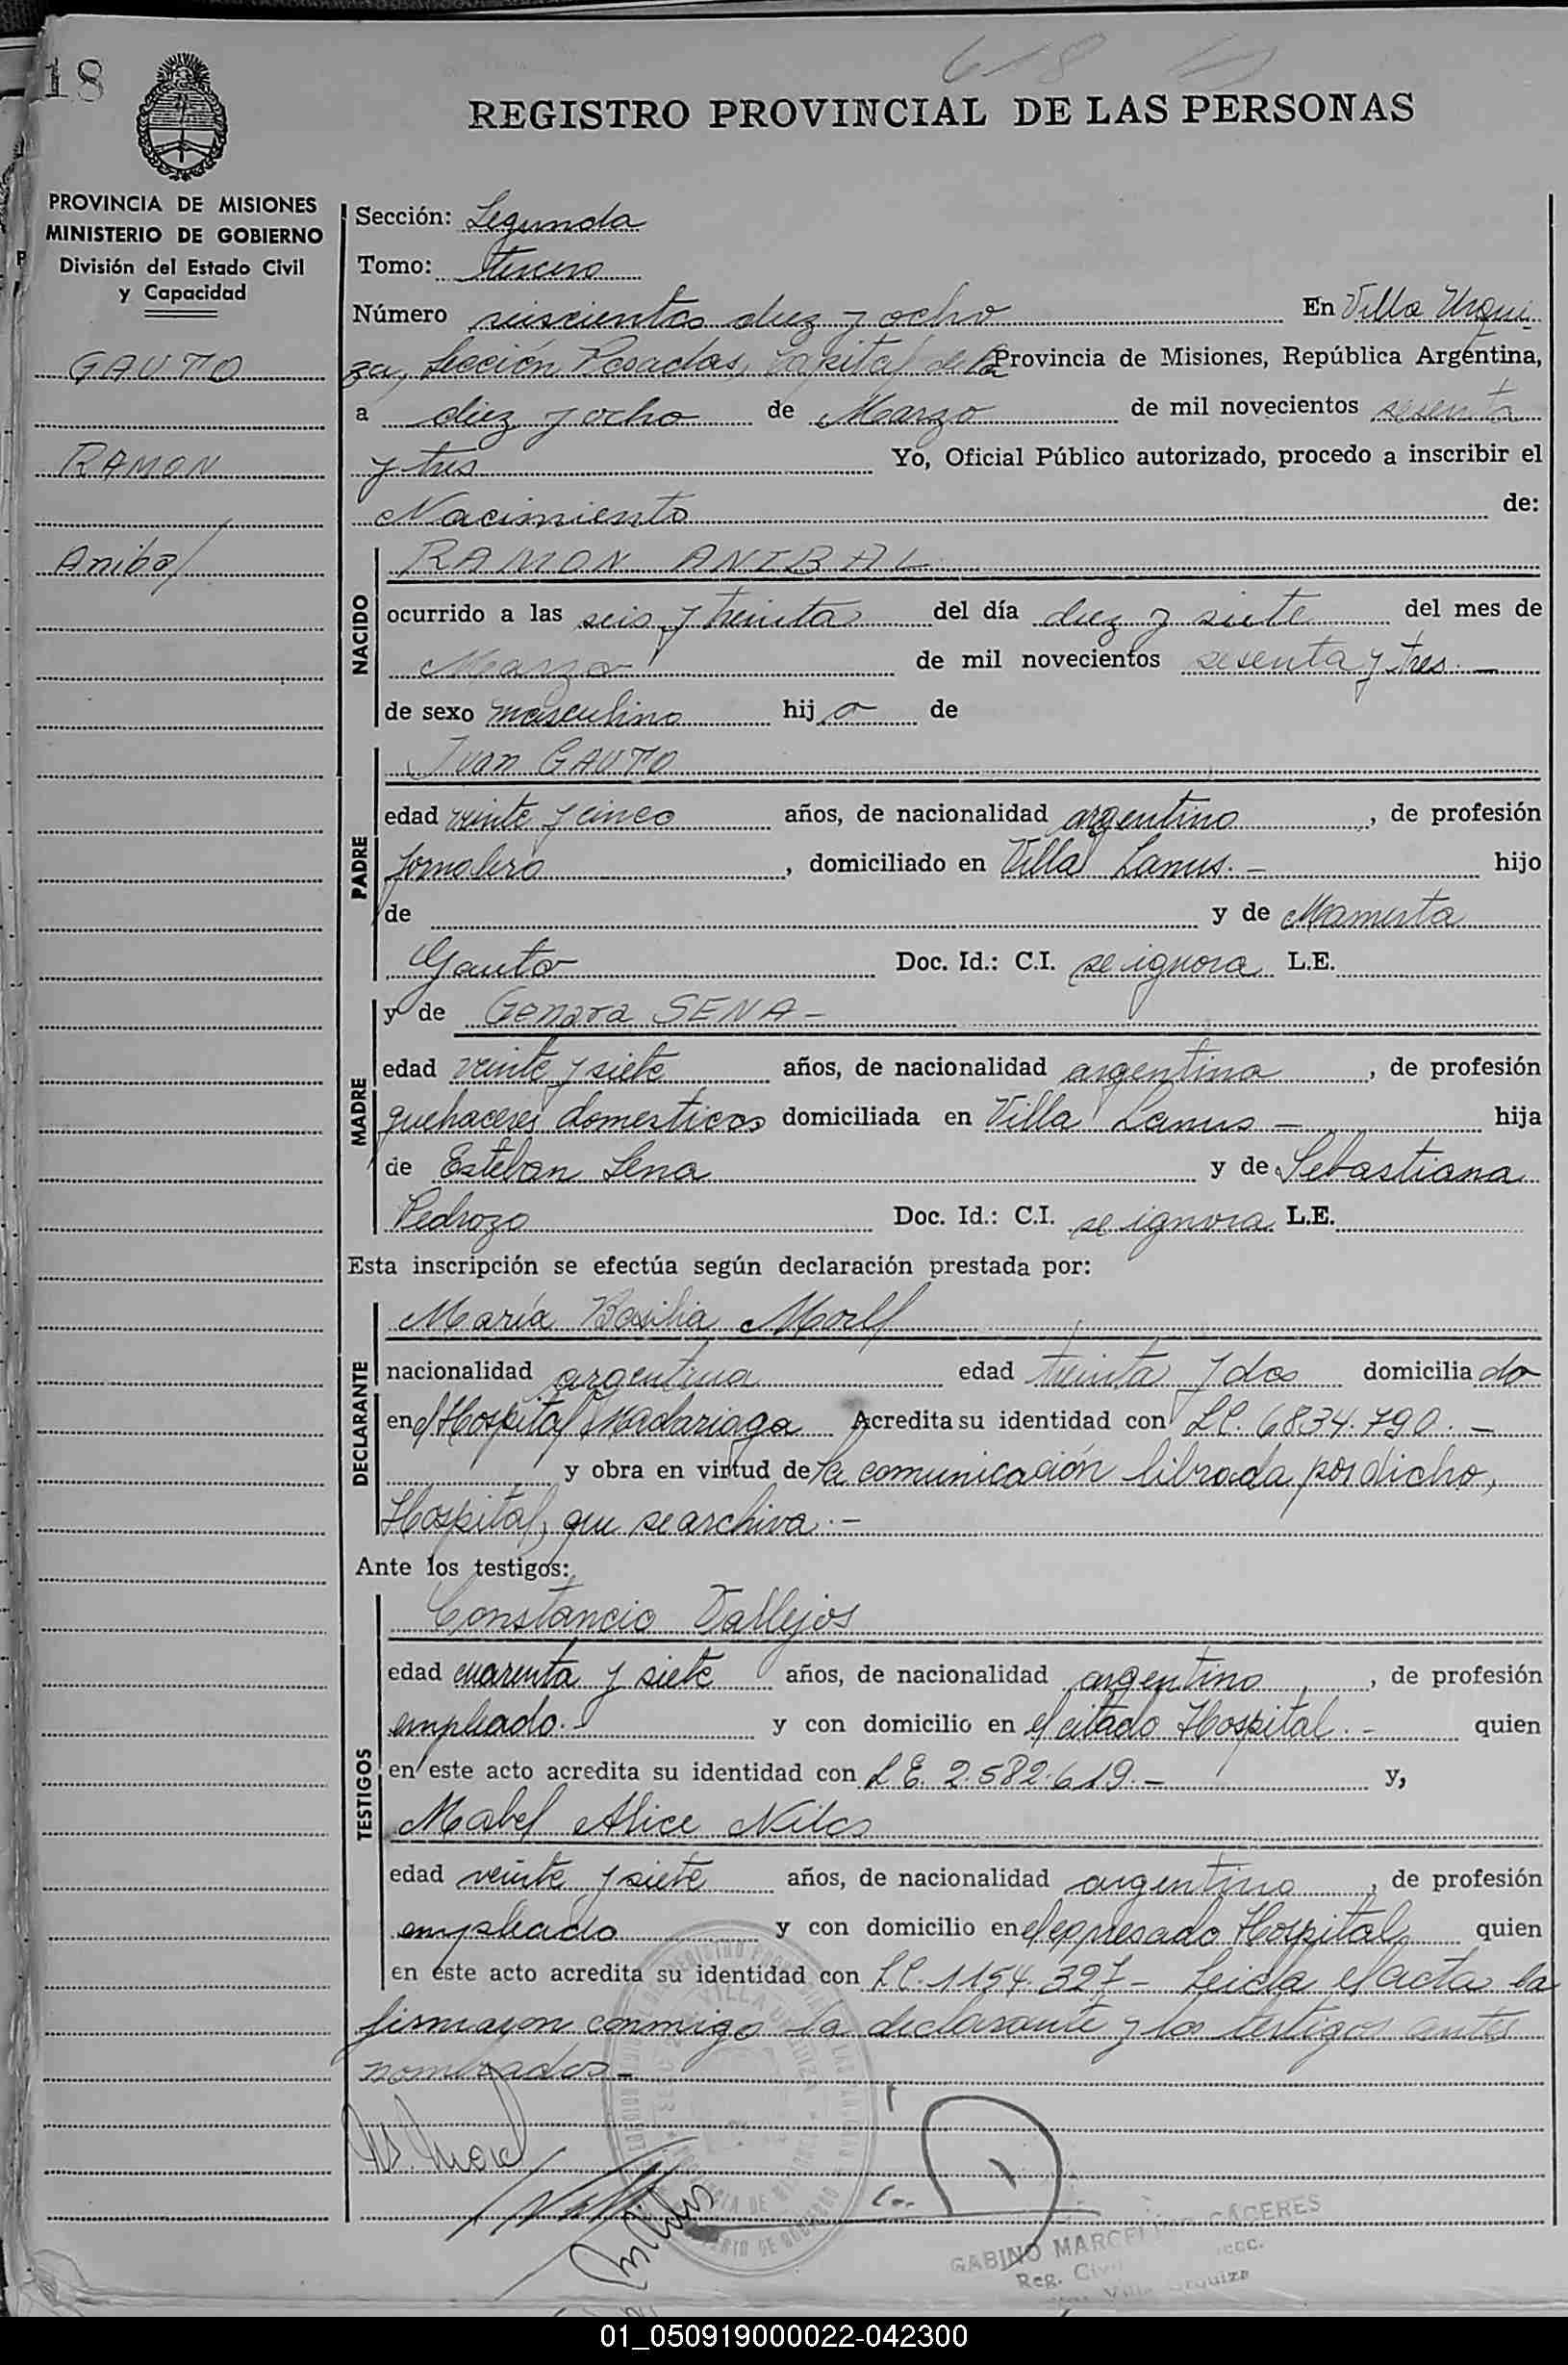 618
18
REGISTRO PROVINCIAL DE LAS PERSONAS
PROVINCIA DE MISIONES
MINISTERIO DE GOBIERNO
División del Estado Civil
y Capacidad
GAUTO
RAMON
Anibal
Sección: Segunda
Tomo: tercero
Número seiscientos diez y ocho En Villa Urqui
za, Sección Posadas, Capital de la Provincia de Misiones, República Argentina,
a diez y ocho de Marzo de mil novecientos sesenta
y tres Yo, Oficial Público autorizado, procedo a inscribir el
Nacimiento de:
NACIDO
RAMON ANIBAL
ocurrido a las seis y treinta del día diez y siete del mes de
Marzo de mil novecientos sesenta y tres.—
de sexo masculino hijo de
PADRE
Juan GAUTO
edad veinte y cinco años, de nacionalidad argentino, de profesión
jornalero, domiciliado en Villa Lanus.— hijo
de y de Mamerta
Gauto Doc. Id.: C.I. se ignora L.E.
MADRE
y de Genara SENA—
edad veinte y siete años, de nacionalidad argentina, de profesión
quehaceres domesticos domiciliada en Villa Lanus— hija
de Esteban Sena y de Sebastiana
Pedrozo Doc. Id.: C.I. se ignora L.E.
Esta inscripción se efectúa según declaración prestada por:
DECLARANTE
María Basilia
nacionalidad argentina edad treinta y dos domiciliado
en el Hospital Madariaga Acredita su identidad con LC. 6834.790.—
y obra en virtud de la comunicación librada por dicho,
Hospital, que se archiva.—
Ante los testigos:
TESTIGOS
Constancio Vallejos
edad cuarenta y siete años, de nacionalidad argentino, de profesión
empleado.— y con domicilio en el citado Hospital.— quien
en este acto acredita su identidad con L.E. 2.582.619.— y,
Mabel Alice
edad veinte y siete años, de nacionalidad argentino, de profesión
empleado y con domicilio en el expresado Hospital quien
en este acto acredita su identidad con LC. 1154.327— Leida el acta la
firmaron conmigo la declarante y los testigos antes
nombrados—
GABINO MARCELINO CACERES
Reg. Civil
Villa Urquiza
01_050919000022-042300